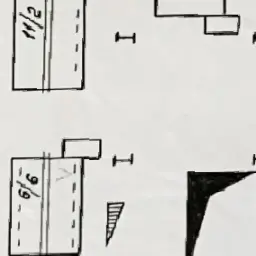 11/2
6/6